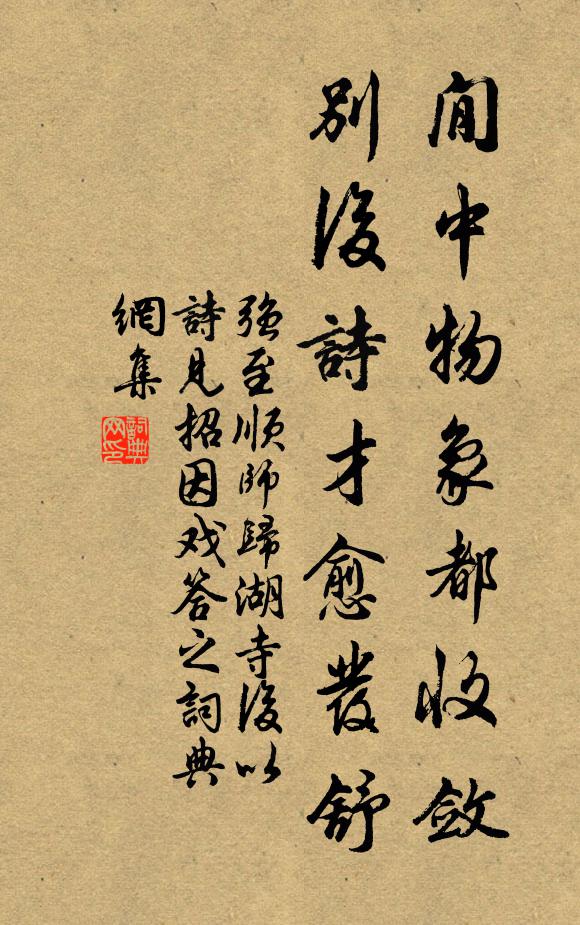 閒中物象都收斂
別後詩才愈發舒
強至順師歸湖寺後以
詩見招因戏答之詞典
網集
詞典網印